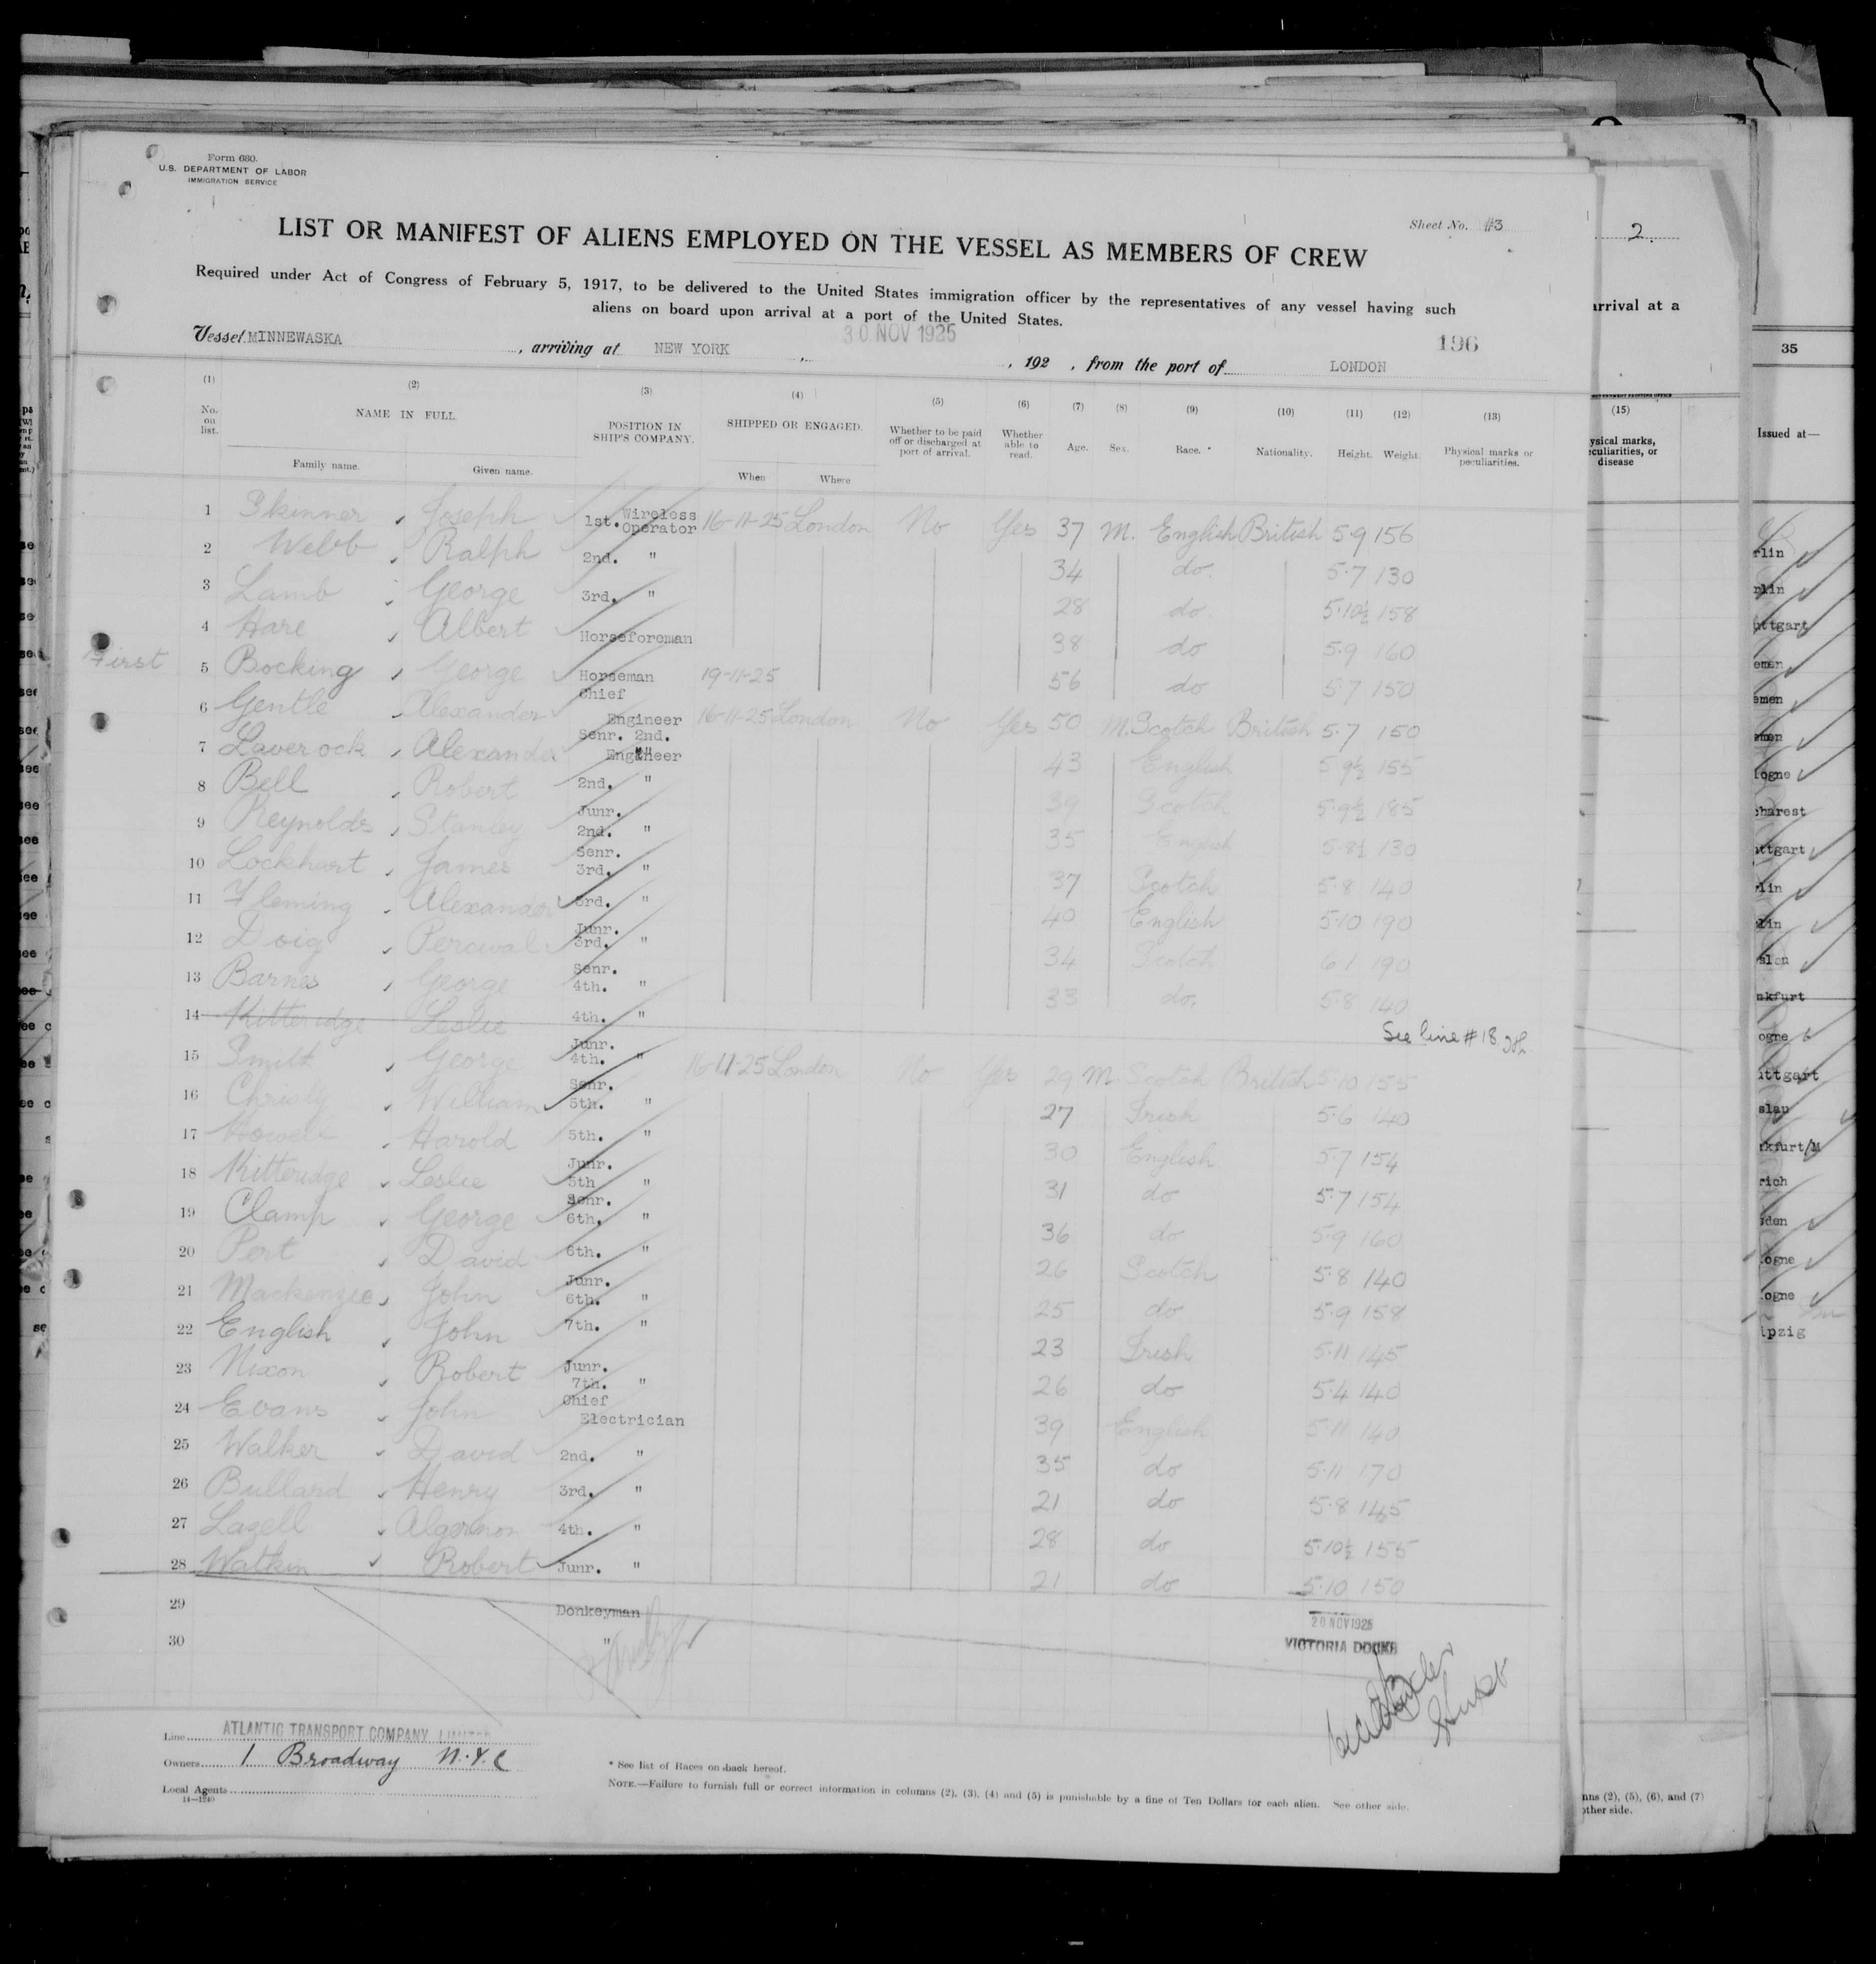 Form 680.
U. S. DEPARTMENT OF LABOR
IMMIGRATION SERVICE
Sheet No. #3
LIST OR MANIFEST OF ALIENS EMPLOYED ON THE VESSEL AS MEMBERS OF CREW
Required under Act of Congress of February 5, 1917, to be delivered to the United States immigration officer by the representatives of any vessel having such
aliens on board upon arrival at a port of the United States.
Vessel MINNEWASKA, arriving at NEW YORK, 30 NOV 1925, 192 , from the port of LONDON
196
(1) (2) (3) (4) (5) (6) (7) (8) (9) (10) (11) (12) (13)
No. on list. NAME IN FULL. POSITION IN SHIP'S COMPANY. SHIPPED OR ENGAGED. Whether to be paid off or discharged at port of arrival. Whether able to read. Age. Sex. Race. * Nationality. Height. Weight. Physical marks or peculiarities.
Family name. Given name. When Where
1 Skinner, Joseph 1st. Wireless Operator 16-11-25 London No Yes 37 M. English British 5·9 156
2 Webb, Ralph 2nd. " 34 do. 5·7 130
3 Lamb, George 3rd. " 28 do. 5·10½ 158
4 Hare, Albert Horseforeman 38 do 5·9 160
First 5 Bocking, George Horseman 19-11-25 56 do 5·7 150
6 Gentle, Alexander Chief Engineer 16-11-25 London No Yes 50 M. Scotch British 5·7 150
7 Laverock, Alexander Senr. 2nd. Engineer 43 English 5·9½ 155
8 Bell, Robert 2nd. " 39 Scotch 5·9½ 185
9 Reynolds, Stanley Junr. 2nd. " 35 English 5·8½ 130
10 Lockhart, James Senr. 3rd. " 37 Scotch 5·8 140
11 Fleming, Alexander 3rd. " 40 English 5·10 190
12 Doig, Percival Junr. 3rd. " 34 Scotch 6·1 190
13 Barnes, George Senr. 4th. " 33 do. 5·8 140
14 Kitteridge Leslie 4th. " See line #18
15 Smith, George Junr. 4th. " 16-11-25 London No Yes 29 M. Scotch British 5·10 155
16 Christy, William Senr. 5th. " 27 Irish 5·6 140
17 Howell, Harold 5th. " 30 English 5·7 154
18 Kitteridge, Leslie Junr. 5th " 31 do 5·7 154
19 Clamp, George Senr. 6th. " 36 do 5·9 160
20 Pert, David 6th. " 26 Scotch 5·8 140
21 Mackenzie, John Junr. 6th. " 25 do 5·9 158
22 English, John 7th. " 23 Irish 5·11 145
23 Nixon, Robert Junr. 7th. " 26 do 5·4 140
24 Evans, John Chief Electrician 39 English 5·11 140
25 Walker, David 2nd. " 35 do 5·11 170
26 Bullard, Henry 3rd. " 21 do 5·8 145
27 Lazell, Algernon 4th. " 28 do 5·10½ 155
28 Watkin, Robert Junr. " 21 do 5·10 150
29 Donkeyman
30 "
20 NOV 1925
VICTORIA DOCKS
Line ATLANTIC TRANSPORT COMPANY LIMITED
Owners 1 Broadway N.Y.C
Local Agents
14-1240
* See list of Races on back hereof.
NOTE.—Failure to furnish full or correct information in columns (2), (3), (4) and (5) is punishable by a fine of Ten Dollars for each alien. See other side.
2.
arrival at a
(15)
ysical marks,
eculiarities, or
disease
nns (2), (5), (6), and (7)
other side.
35
Issued at—
rlin
rlin
uttgart
emen
emen
emen
ogne
charest
uttgart
rlin
rlin
slau
nkfurt
ogne
uttgart
slau
nkfurt/M
rich
sden
logne
logne
ipzig